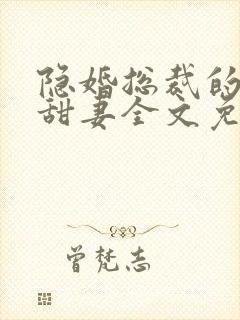 隐婚总裁的
甜妻全文免
曾梵志